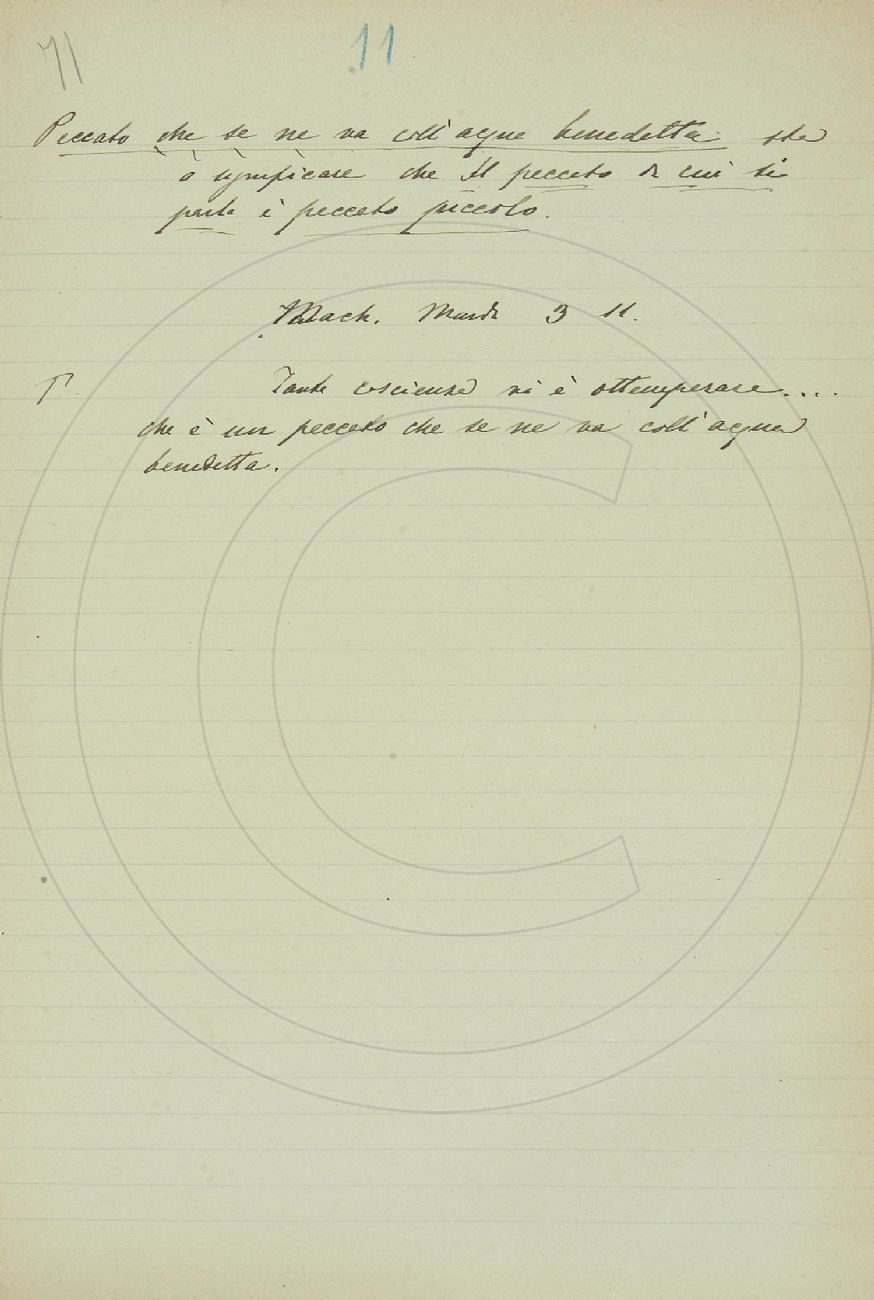 71 11
Peccato che se ne va coll'acqua benedetta sta
a significare che Il peccato di cui si
parla è peccato piccolo.
Mach. Mandr 3 11.
Tanta coscienza vi è ottemperare....
che è un peccato che se ne va coll'acqua
benedetta.